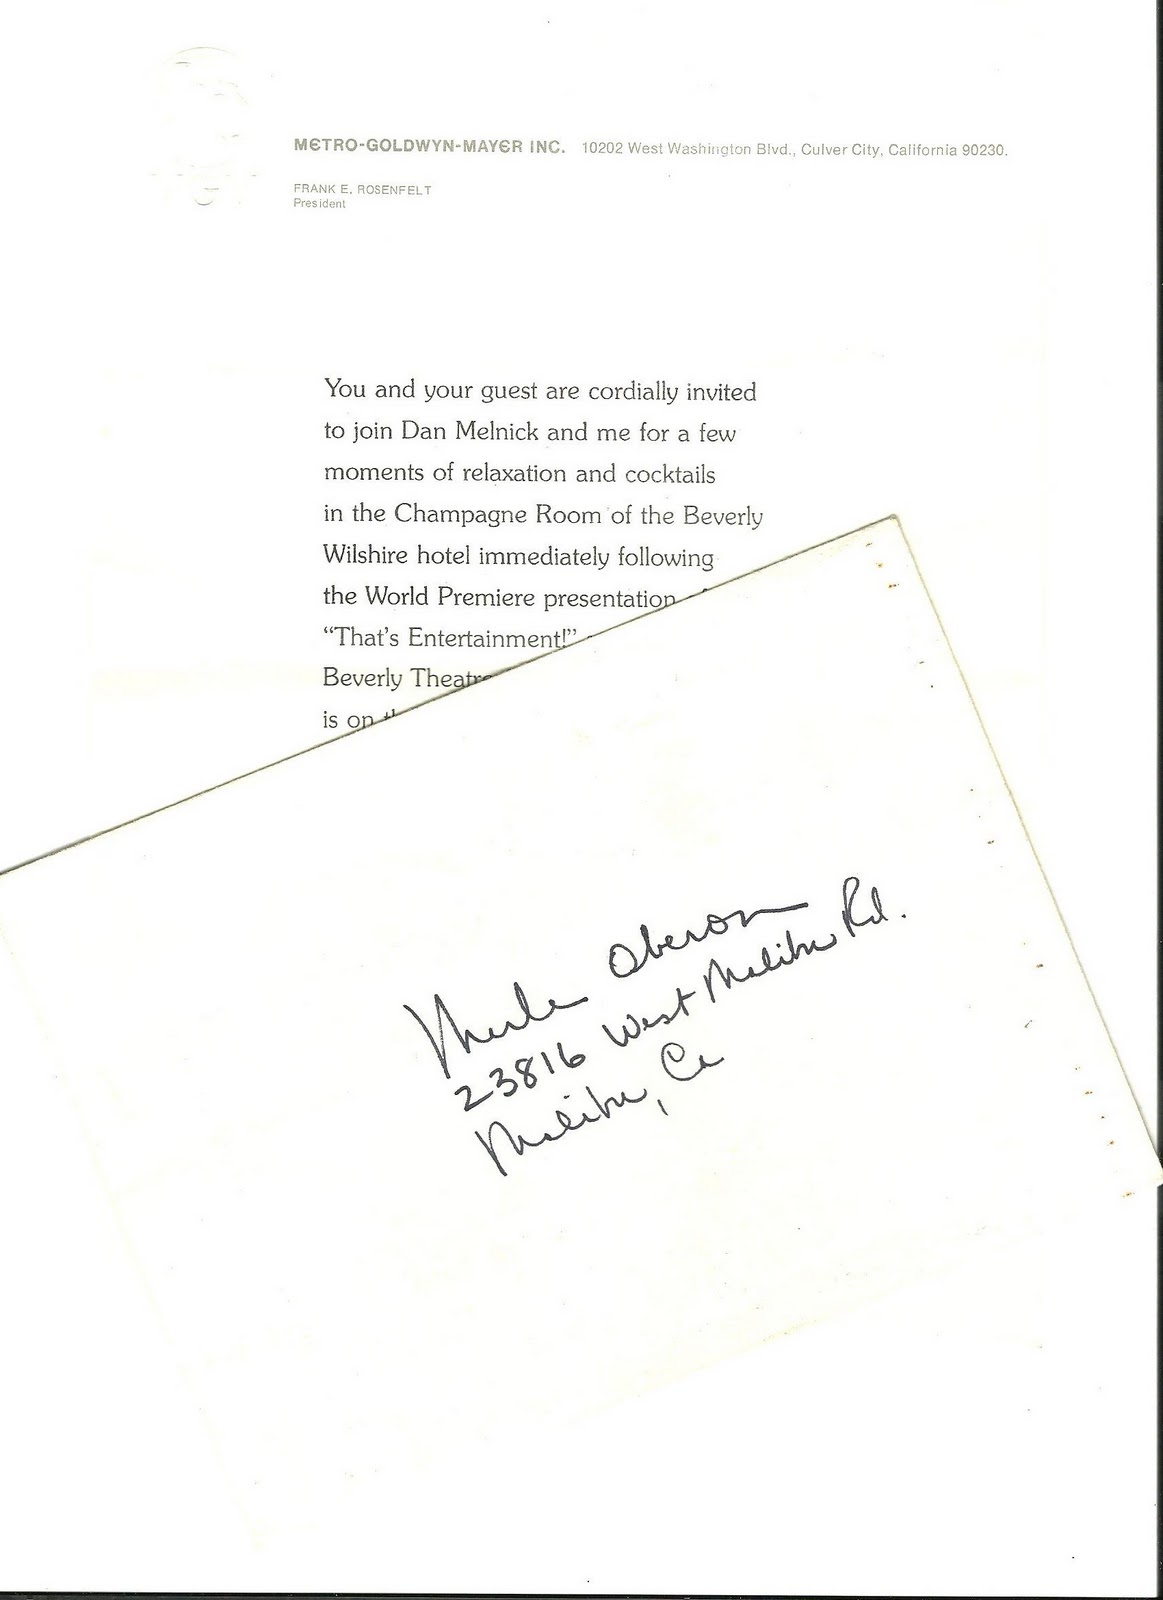 METRO-GOLDWYN-MAYER INC. 10202 West Washington Blvd., Culver City, California 90230.
FRANK E. ROSENFELT
President
You and your guest are cordially invited
to join Dan Melnick and me for a few
moments of relaxation and cocktails
in the Champagne Room of the Beverly
Wilshire hotel immediately following
the World Premiere presentation
“That’s Entertainment!”
Beverly Theatre
is on
Merle Oberon
23816 West Malibu Rd.
Malibu, Ca